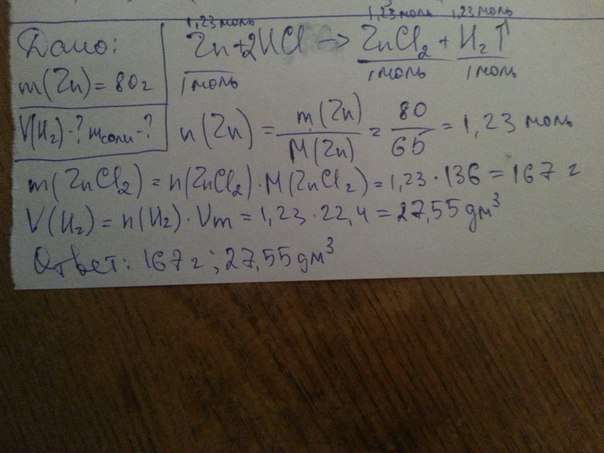 Дано:
m(Zn) = 80 г
V(H₂) - ? m соли - ?
1,23 моль 1,23 моль 1,23 моль
Zn + 2HCl → ZnCl₂ + H₂↑
1 моль 1 моль 1 моль
n(Zn) = m(Zn)/M(Zn) = 80/65 = 1,23 моль
m(ZnCl₂) = n(ZnCl₂) · M(ZnCl₂) = 1,23 · 136 = 167 г
V(H₂) = n(H₂) · Vm = 1,23 · 22,4 = 27,55 дм³
Ответ: 167 г; 27,55 дм³